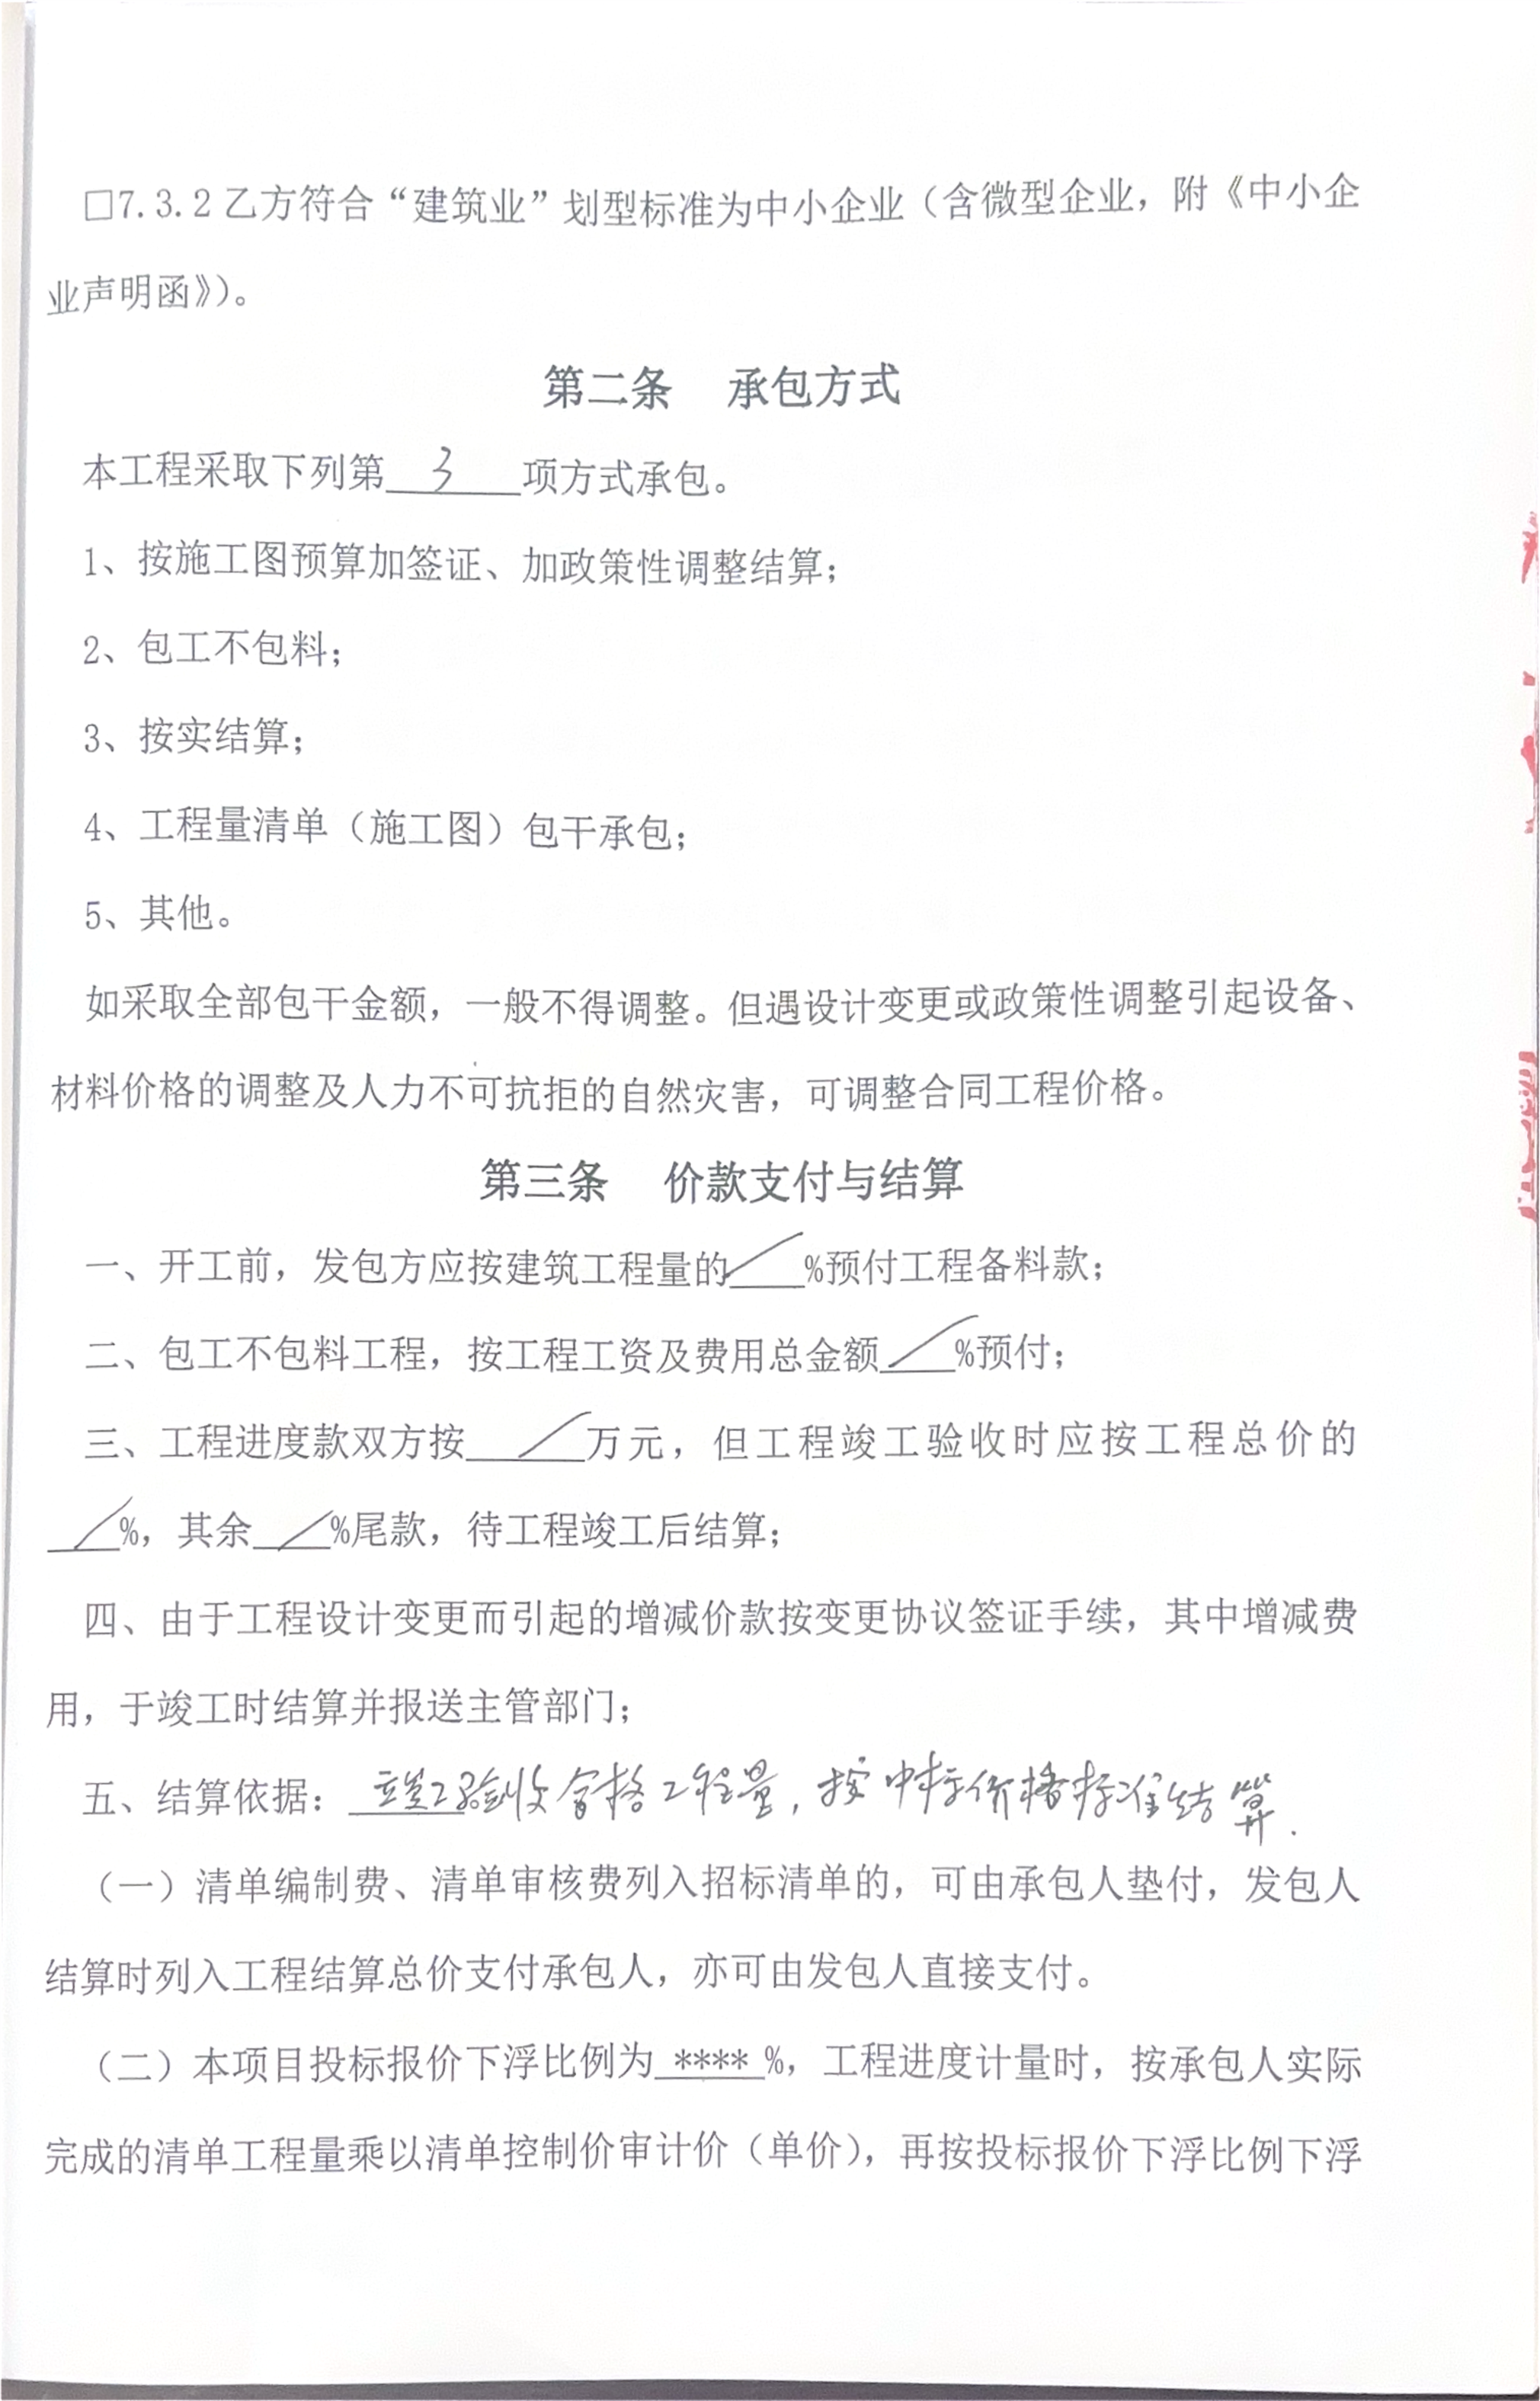 □7.3.2乙方符合“建筑业”划型标准为中小企业（含微型企业，附《中小企
业声明函》）。
第二条 承包方式
本工程采取下列第 3 项方式承包。
1、按施工图预算加签证、加政策性调整结算；
2、包工不包料；
3、按实结算；
4、工程量清单（施工图）包干承包；
5、其他。
如采取全部包干金额，一般不得调整。但遇设计变更或政策性调整引起设备、
材料价格的调整及人力不可抗拒的自然灾害，可调整合同工程价格。
第三条 价款支付与结算
一、开工前，发包方应按建筑工程量的 / %预付工程备料款；
二、包工不包料工程，按工程工资及费用总金额 / %预付；
三、工程进度款双方按 / 万元，但工程竣工验收时应按工程总价的
/ %，其余 / %尾款，待工程竣工后结算；
四、由于工程设计变更而引起的增减价款按变更协议签证手续，其中增减费
用，于竣工时结算并报送主管部门；
五、结算依据：竣工验收合格工程量，按中标价格标准结算.
（一）清单编制费、清单审核费列入招标清单的，可由承包人垫付，发包人
结算时列入工程结算总价支付承包人，亦可由发包人直接支付。
（二）本项目投标报价下浮比例为 **** %，工程进度计量时，按承包人实际
完成的清单工程量乘以清单控制价审计价（单价），再按投标报价下浮比例下浮